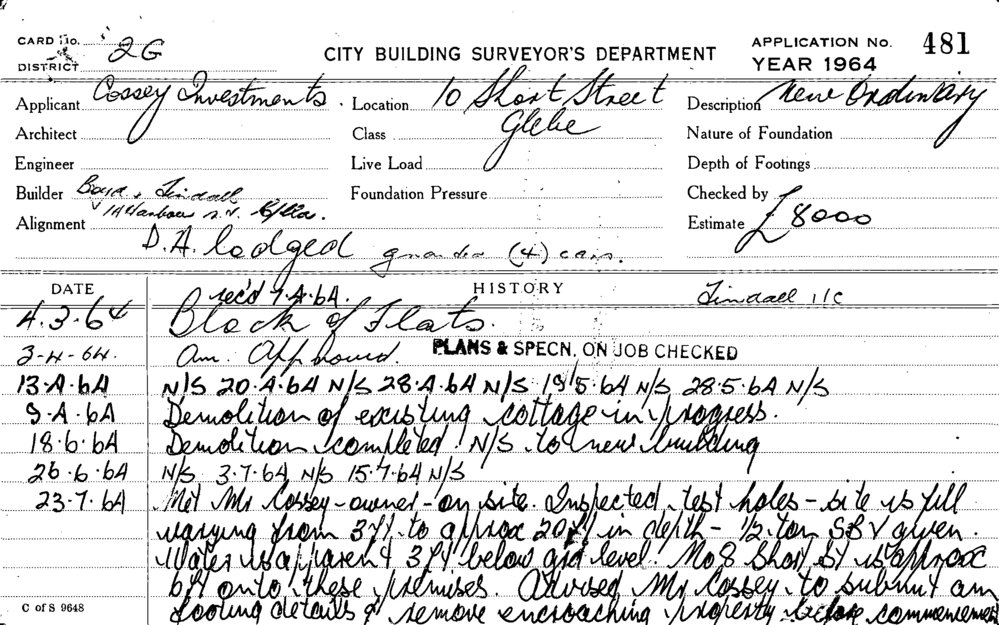 CARD No. 2G
DISTRICT
CITY BUILDING SURVEYOR'S DEPARTMENT
APPLICATION No. 481
YEAR 1964
Applicant Cossey Investments. Location 10 Short Street Description New Ordinary
Architect Class Glebe Nature of Foundation
Engineer Live Load Depth of Footings
Builder Boyd & Tindall Foundation Pressure Checked by
Alignment 1A Harbour Estimate £8000
D.A. lodged (4) cars.
DATE HISTORY
rec'd 7.4.64. Tindall
4.3.64 Block of Flats.
3-4-64. Am. Approved. PLANS & SPECN. ON JOB CHECKED
13.4.64 N/S 20.4.64 N/S 28.4.64 N/S 19/5.64 N/S 28.5.64 N/S
9.4.64 Demolition of existing cottage in progress.
18.6.64 Demolition completed N/S to new building
26.6.64 N/S 3.7.64 N/S 15.7.64 N/S
23.7.64 Met Mr Cossey - owner - on site. Inspected test holes - site is fill
varying from 3ft to approx 20ft in depth - 1/2 ton SBV given.
Water is apparent 3ft below grd level. No 8 Short St is approx
6ft onto these premises. Advised Mr Cossey to submit am
footing details & remove encroaching property before commencement
C of S 9648